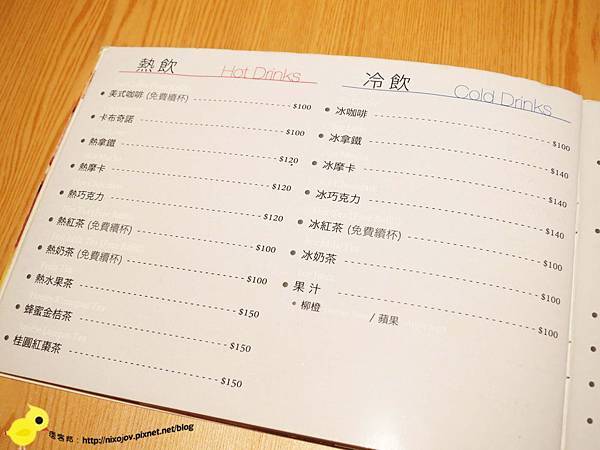 熱飲 Hot Drinks
美式咖啡 (免費續杯) $100
卡布奇諾 $100
熱拿鐵 $120
熱摩卡 $120
熱巧克力 $120
熱紅茶 (免費續杯) $100
熱奶茶 (免費續杯) $100
熱水果茶 $150
蜂蜜金桔茶 $150
桂圓紅棗茶 $150
冷飲 Cold Drinks
冰咖啡 $100
冰拿鐵 $140
冰摩卡 $140
冰巧克力 $140
冰紅茶 (免費續杯) $100
冰奶茶 $100
果汁 $100
柳橙 / 蘋果
http://nixojov.pixnet.net/blog